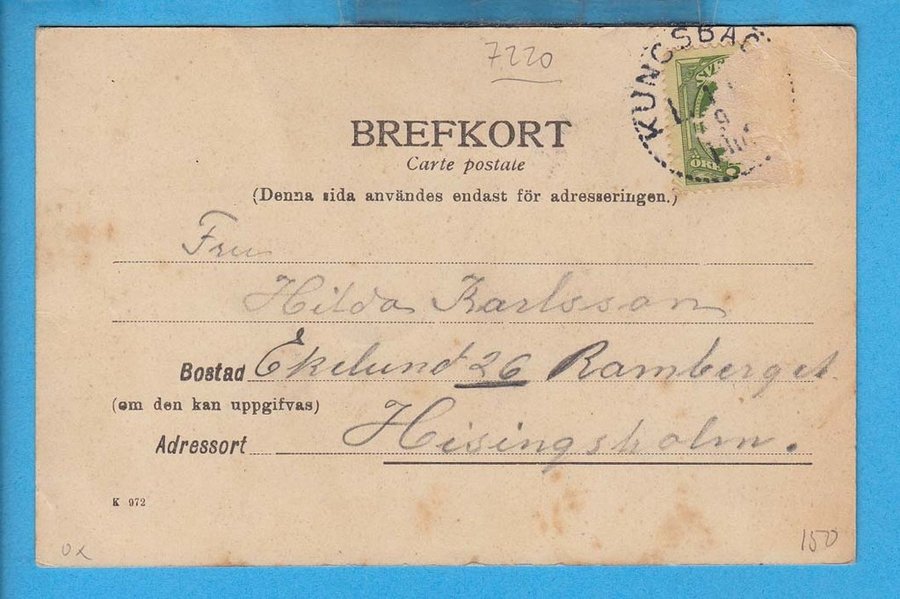 7220
KUNGSBAC
ÖRE
BREFKORT
Carte postale
(Denna sida användes endast för adresseringen.)
Fru
Hilda Karlsson
Bostad Ekelund 26 Ramberget
(om den kan uppgifvas)
Adressort Hisingsholm.
K 972
150